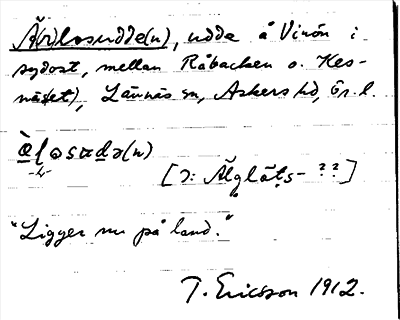 Ä(r)losudde(n), udde å Vinön i
sydost, mellan Råbacken o. Kes-
näs(et), Lännäs sn, Askers hd, Ör. l.
[ɔ: Älglåts- ??]
"Ligger nu på land."
T. Ericsson 1912.